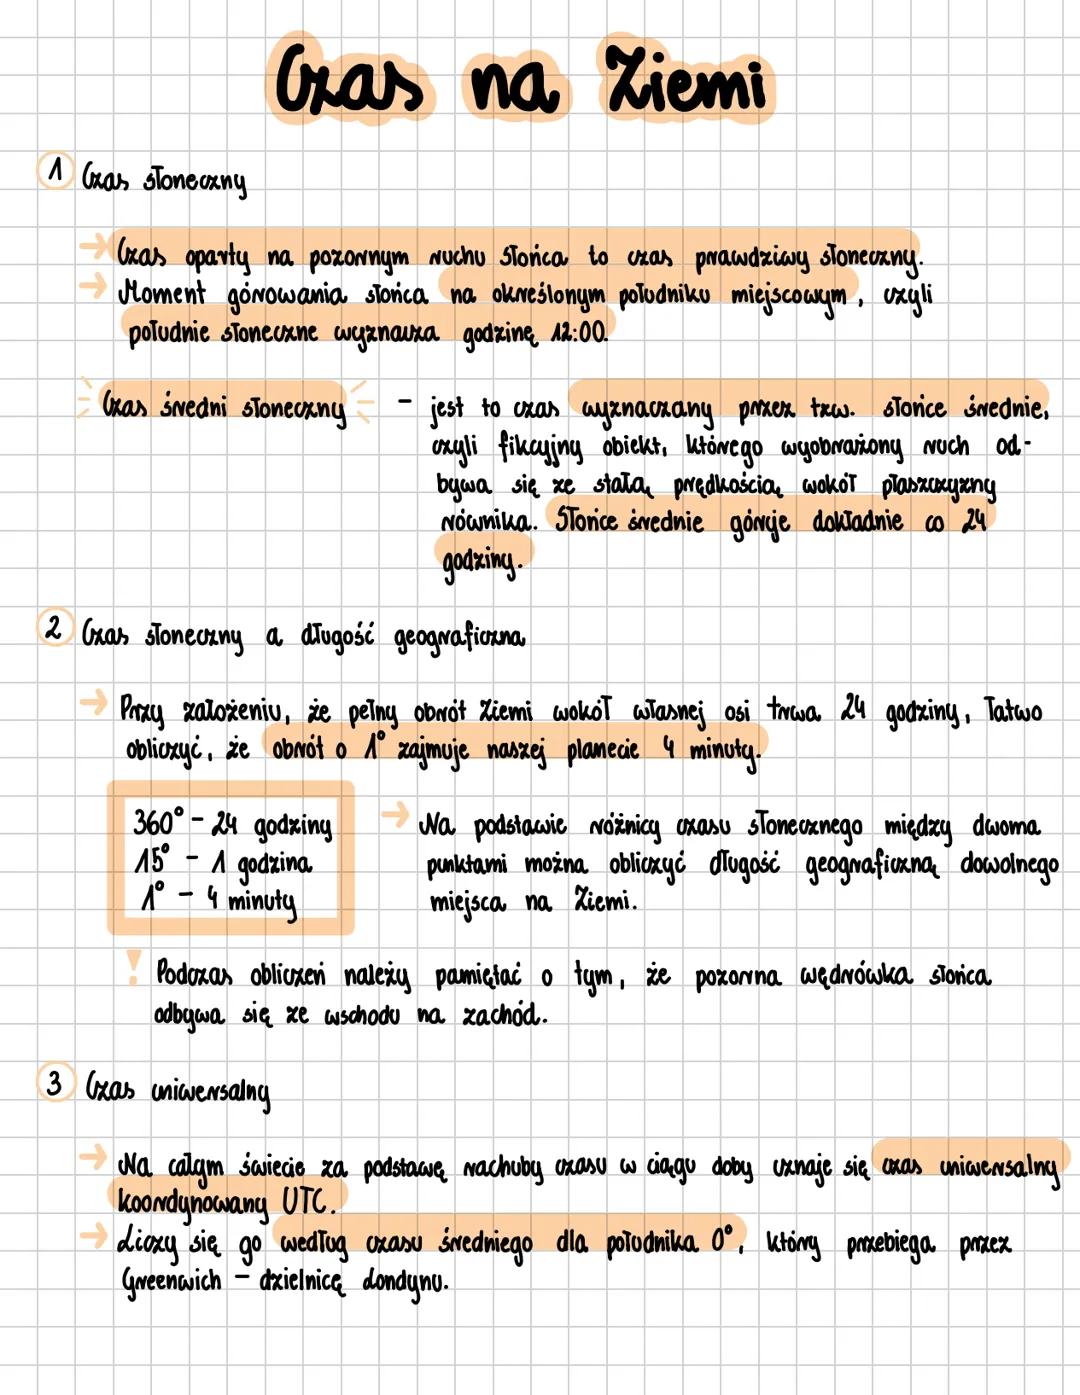 Czas na Ziemi
1 Czas słoneczny
→ Czas oparty na pozornym ruchu Słońca to czas prawdziwy słoneczny.
→ Moment górowania słońca na określonym południku miejscowym, czyli
południe słoneczne wyznacza godzinę 12:00.
Czas średni słoneczny - jest to czas wyznaczany przez tzw. słońce średnie,
czyli fikcyjny obiekt, którego wyobrażony ruch od-
bywa się ze stałą prędkością wokół płaszczyzny
równika. Słońce średnie góruje dokładnie co 24
godziny.
2 Czas słoneczny a długość geograficzna
→ Przy założeniu, że pełny obrót Ziemi wokół własnej osi trwa 24 godziny, łatwo
obliczyć, że obrót o 1° zajmuje naszej planecie 4 minuty.
360° - 24 godziny
15° - 1 godzina
1° - 4 minuty
→ Na podstawie różnicy czasu słonecznego między dwoma
punktami można obliczyć długość geograficzną dowolnego
miejsca na Ziemi.
! Podczas obliczeń należy pamiętać o tym, że pozorna wędrówka słońca
odbywa się ze wschodu na zachód.
3 Czas uniwersalny
→ Na całym świecie za podstawę rachuby czasu w ciągu doby uznaje się czas uniwersalny
koordynowany UTC.
→ Liczy się go według czasu średniego dla południka 0°, który przebiega przez
Greenwich - dzielnicę Londynu.